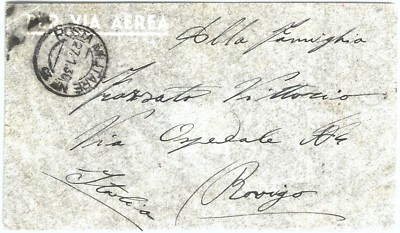 VIA AEREA
POSTA MILITARE
27.1.36
Alla Famiglia
Frazzato Vittorio
Via Ospedale N4
Rovigo
Italia